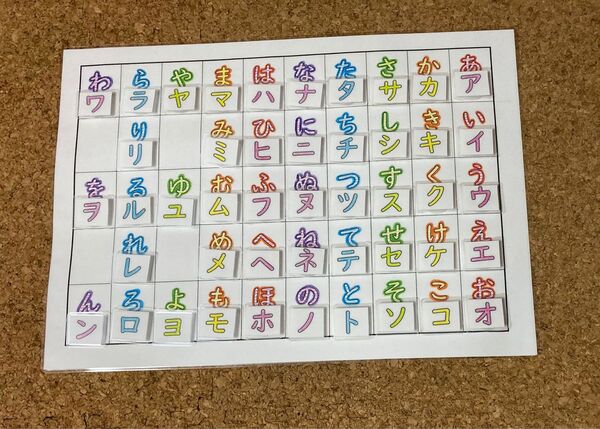 あ ア
い イ
う ウ
え エ
お オ
か カ
き キ
く ク
け ケ
こ コ
さ サ
し シ
す ス
せ セ
そ ソ
た タ
ち チ
つ ツ
て テ
と ト
な ナ
に ニ
ぬ ヌ
ね ネ
の ノ
は ハ
ひ ヒ
ふ フ
へ ヘ
ほ ホ
ま マ
み ミ
む ム
め メ
も モ
や ヤ
ゆ ユ
よ ヨ
ら ラ
り リ
る ル
れ レ
ろ ロ
わ ワ
を ヲ
ん ン